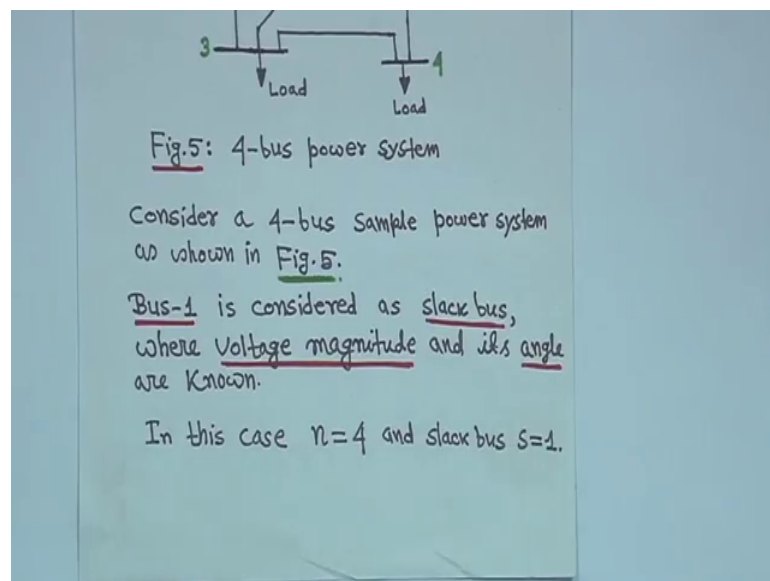 3
4
Load
Load
Fig.5: 4-bus power system
Consider a 4-bus sample power system
as shown in Fig.5.
Bus-1 is considered as slack bus,
where voltage magnitude and its angle
are known.
In this case n=4 and slack bus s=1.